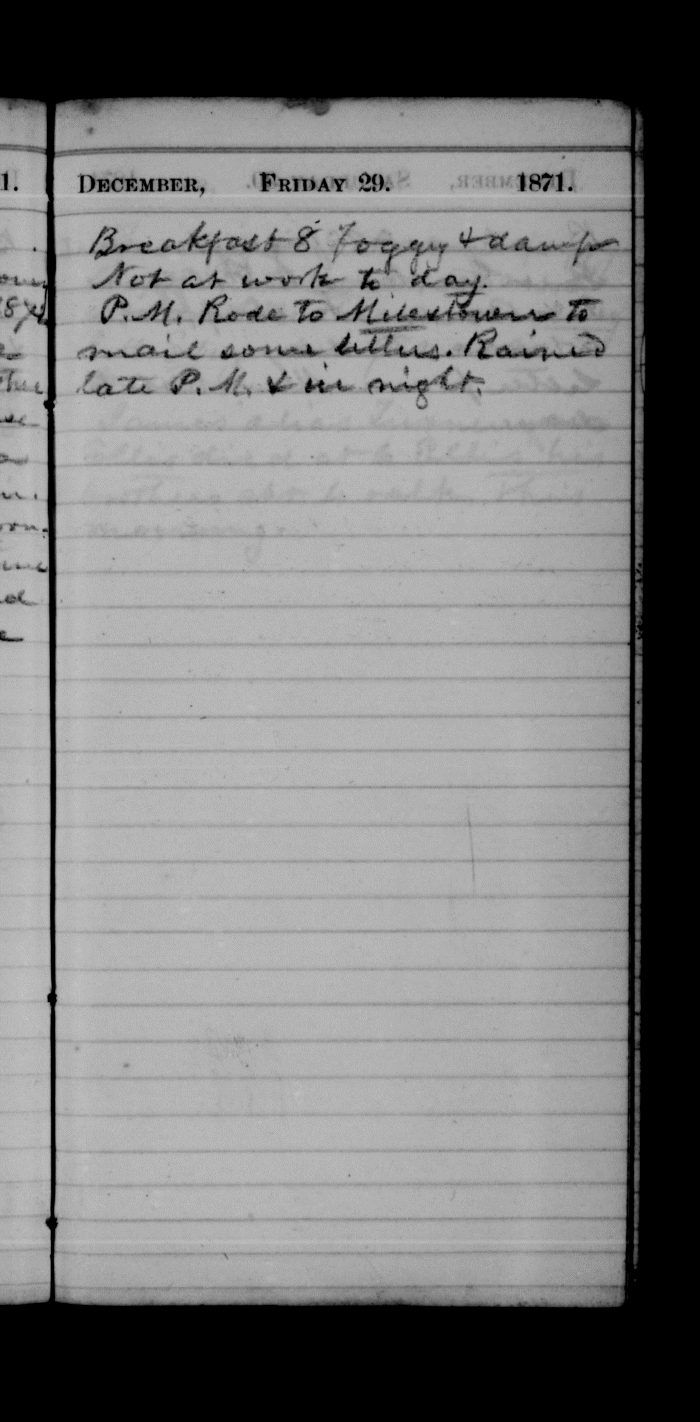 DECEMBER, FRIDAY 29. 1871.
Breakfast 8 Foggy & damp
Not at work to day.
P.M. Rode to Milestown to
mail some letters. Rained
late P.M. & in night.